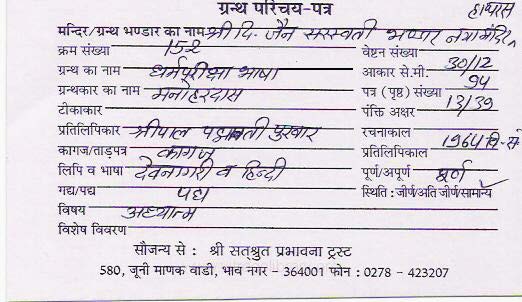 ग्रन्थ परिचय-पत्र
हाथरस
मन्दिर/ग्रन्थ भण्डार का नाम श्री दि. जैन सरस्वती भण्डार नया मंदिर
क्रम संख्या 152 वेष्टन संख्या
ग्रन्थ का नाम धर्मपरीक्षा भाषा आकार से.मी. 30/12
ग्रन्थकार का नाम मनोहरदास पत्र (पृष्ठ) संख्या 94
टीकाकार पंक्ति अक्षर 13/39
प्रतिलिपिकार श्रीपाल पद्मावती पुरवार रचनाकाल
कागज/ताड़पत्र कागज प्रतिलिपिकाल 1964 वि-सं
लिपि व भाषा देवनागरी व हिन्दी पूर्ण/अपूर्ण पूर्ण
गद्य/पद्य पद्य स्थिति : जीर्ण/अति जीर्ण/सामान्य
विषय अध्यात्म
विशेष विवरण
सौजन्य से : श्री सत्श्रुत प्रभावना ट्रस्ट
580, जूनी माणक वाडी, भाव नगर - 364001 फोन : 0278 - 423207